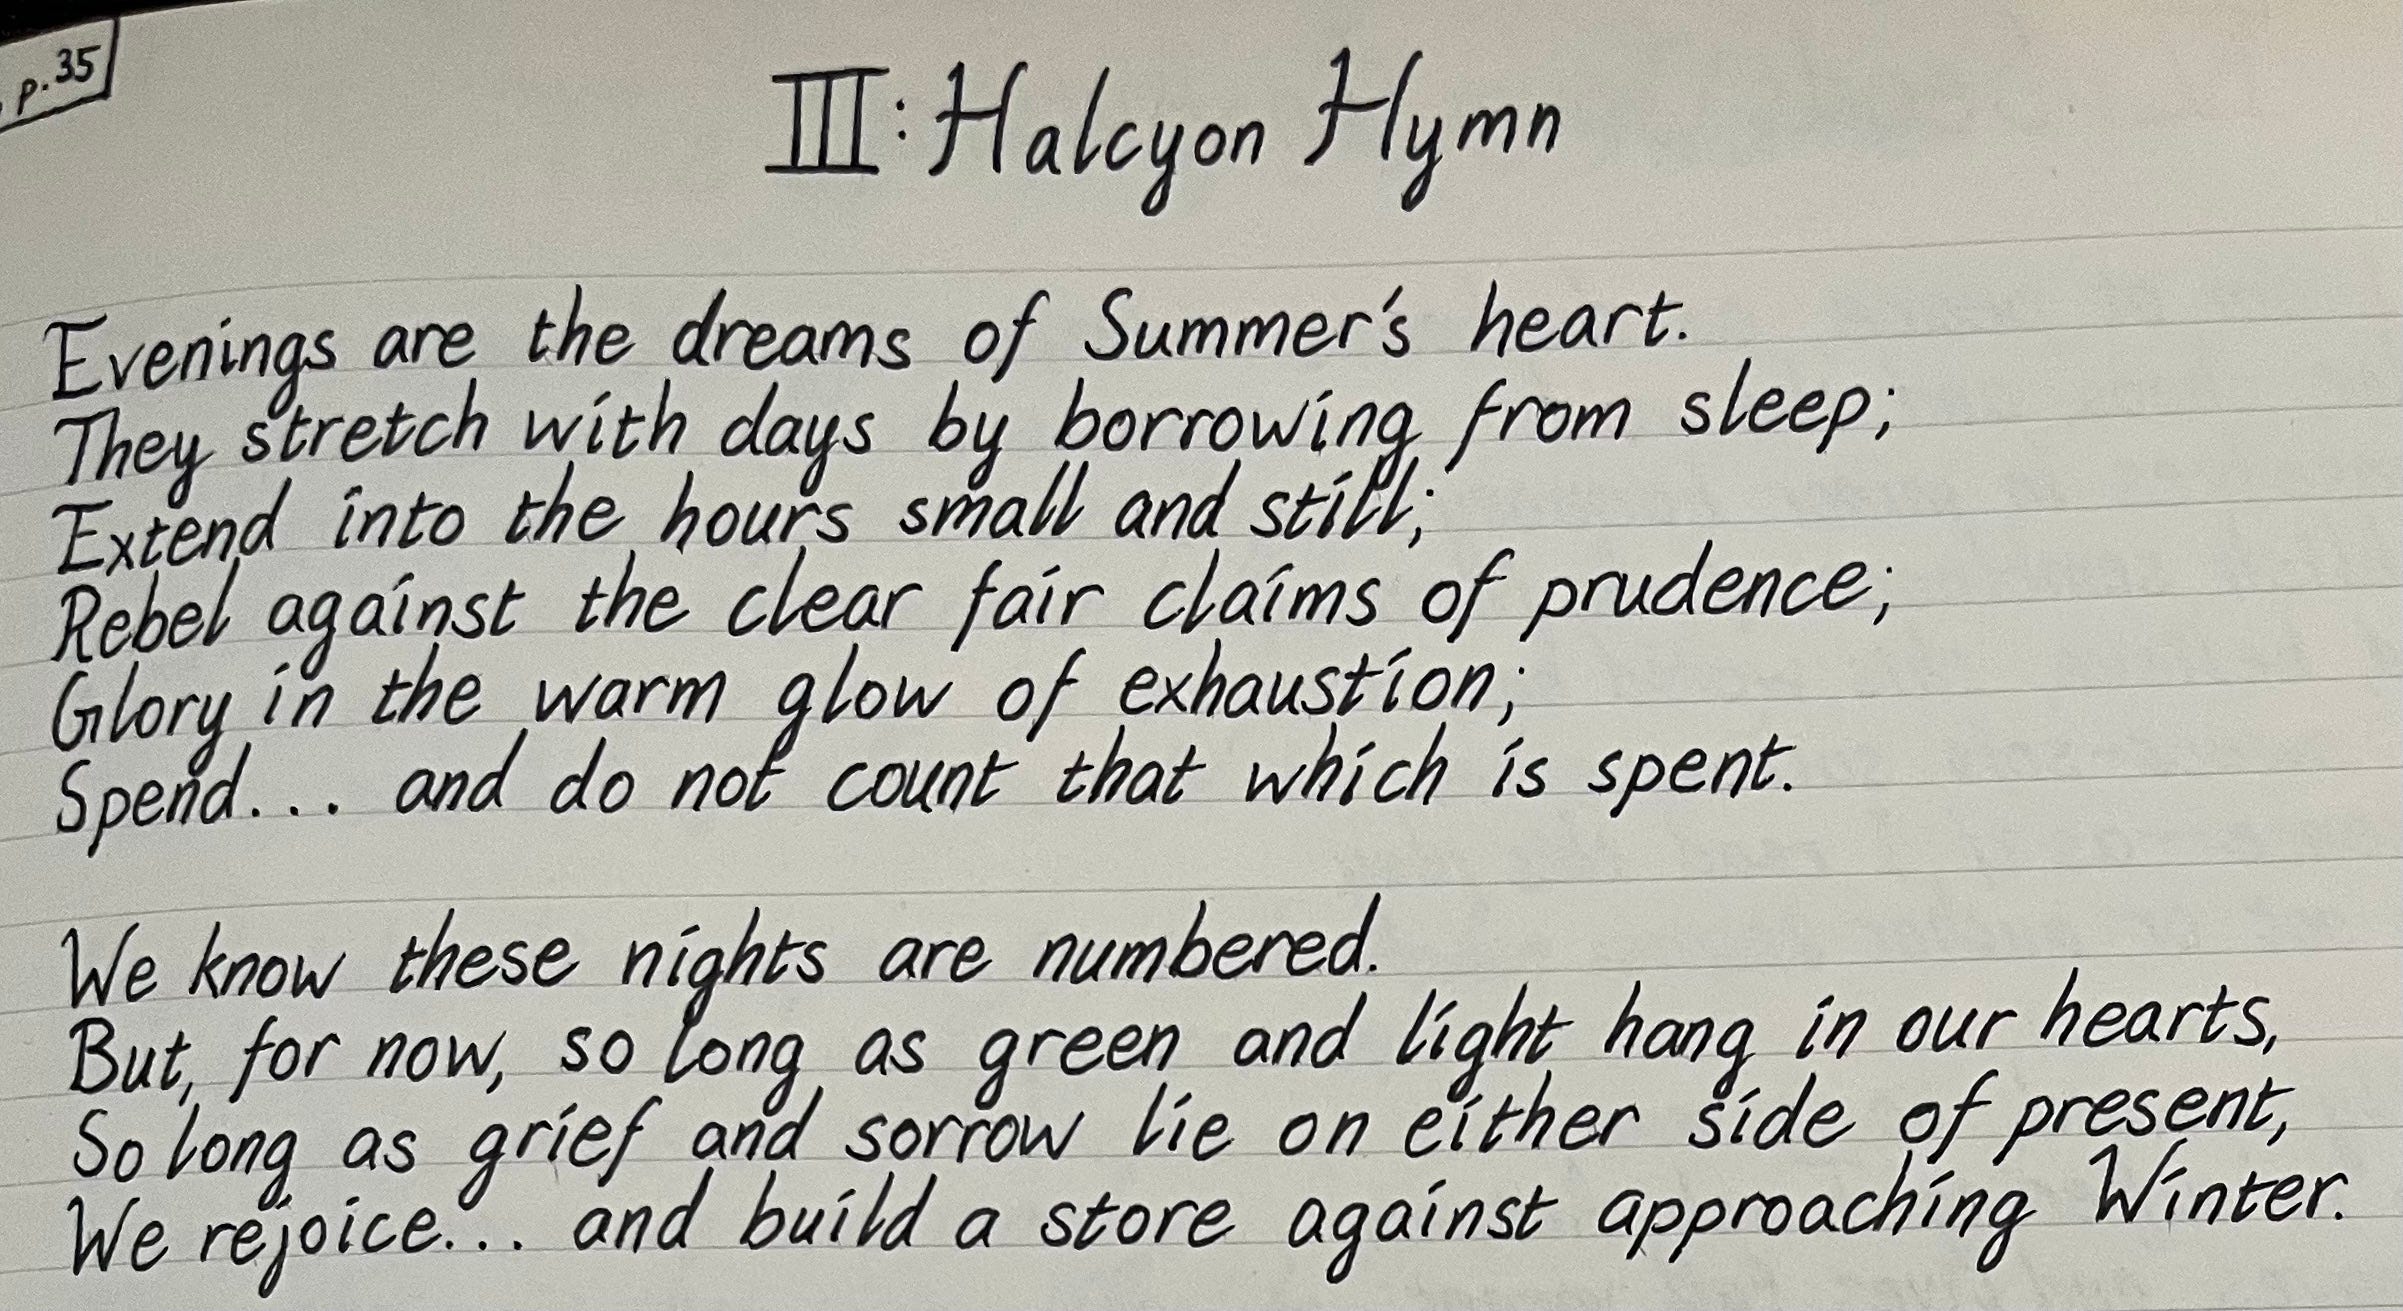 p.35
III: Halcyon Hymn
Evenings are the dreams of Summer's heart.
They stretch with days by borrowing from sleep;
Extend into the hours small and still;
Rebel against the clear fair claims of prudence;
Glory in the warm glow of exhaustion;
Spend... and do not count that which is spent.
We know these nights are numbered.
But, for now, so long as green and light hang in our hearts,
So long as grief and sorrow lie on either side of present,
We rejoice... and build a store against approaching Winter.